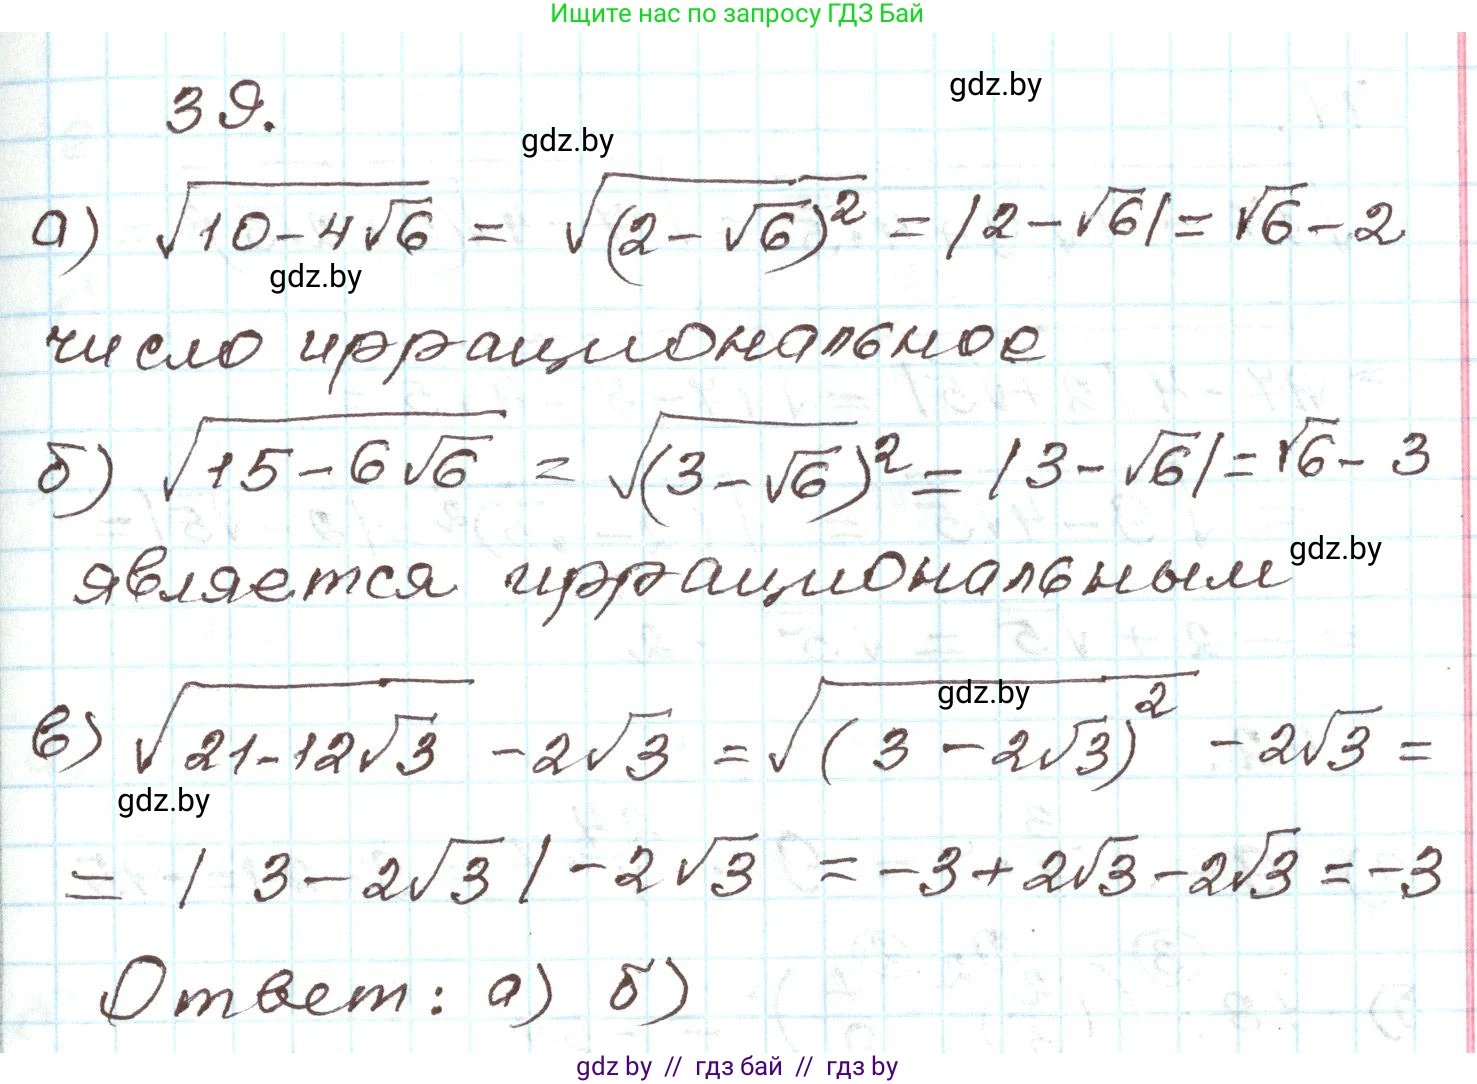 Ищите нас по запросу ГДЗ Бай
39.
gdz.by
gdz.by
а) √(10-4√6) = √((2-√6)²) = |2-√6| = √6-2
gdz.by
число иррациональное
б) √(15-6√6) = √(3-√6)² = |3-√6| = √6-3
gdz.by
является иррациональным
gdz.by
в) √(21-12√3) - 2√3 = √((3-2√3)²) - 2√3 =
gdz.by
= |3-2√3| - 2√3 = -3+2√3-2√3 = -3
Ответ: а) б)
gdz.by // гдз бай // гдз by